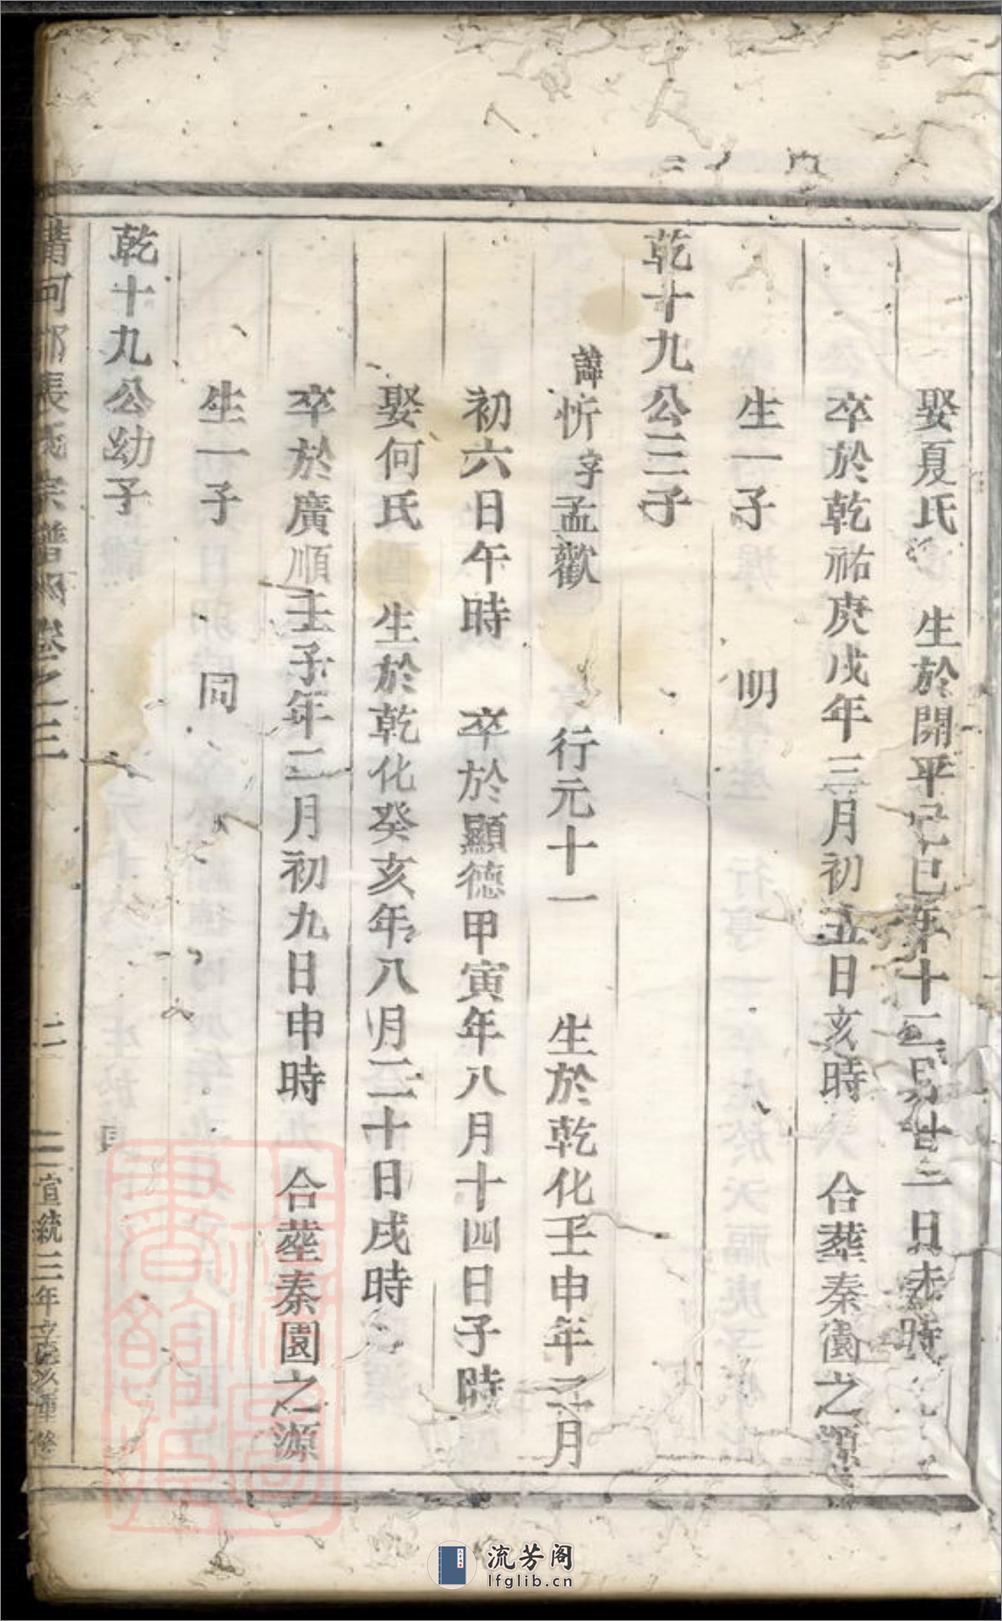 娶夏氏 生於開平己巳年十二月廿二日未時
卒於乾祐庚戌年三月初五日亥時 合葬秦園之源
生一子 明
乾十九公三子
諱忻字孟歡 行元十一 生於乾化壬申年二月
初六日午時 卒於顯德甲寅年八月十四日子時
娶何氏 生於乾化癸亥年八月二十日戌時
卒於廣順壬子年二月初九日申時 合塟秦園之源
生一子 同
乾十九公幼子
清河郡張氏宗譜 卷之三
宣統三年辛亥重修
流芳阁
lfglib.cn